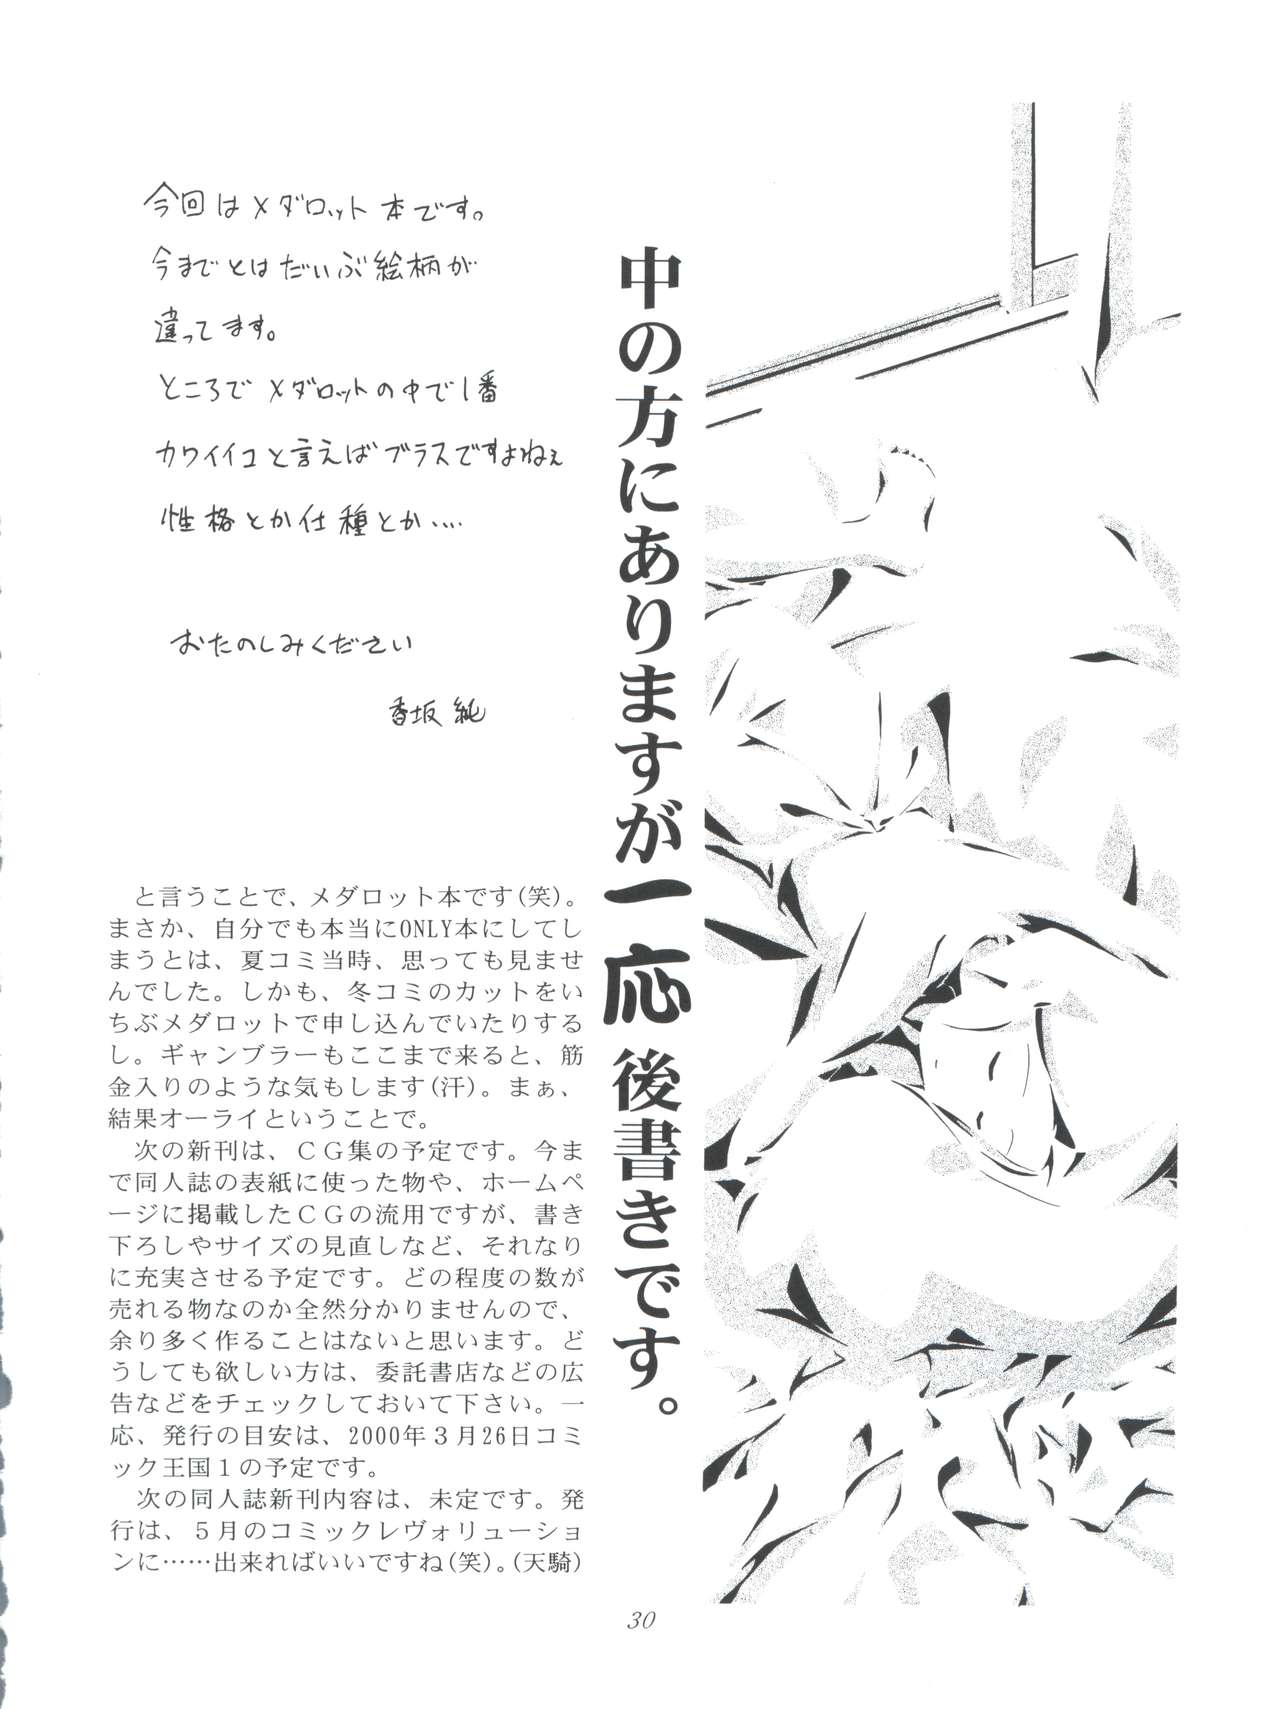 中の方にありますが一応 後書きです。
今回はメダロット本です。
今までとはだいぶ絵柄が
違ってます。
ところでメダロットの中で1番
カワイイコと言えばブラスですよねぇ
性格とか仕種とか….
おたのしみください
香坂 純
と言うことで、メダロット本です(笑)。
まさか、自分でも本当にONLY本にしてし
まうとは、夏コミ当時、思っても見ませ
んでした。しかも、冬コミのカットをい
ちぶメダロットで申し込んでいたりする
し。ギャンブラーもここまで来ると、筋
金入りのような気もします(汗)。まぁ、
結果オーライということで。
次の新刊は、ＣＧ集の予定です。今ま
で同人誌の表紙に使った物や、ホームペ
ージに掲載したＣＧの流用ですが、書き
下ろしやサイズの見直しなど、それなり
に充実させる予定です。どの程度の数が
売れる物なのか全然分かりませんので、
余り多く作ることはないと思います。ど
うしても欲しい方は、委託書店などの広
告などをチェックしておいて下さい。一
応、発行の目安は、2000年３月26日コミ
ック王国１の予定です。
次の同人誌新刊内容は、未定です。発
行は、５月のコミックレヴォリューショ
ンに……出来ればいいですね(笑)。(天騎)
30